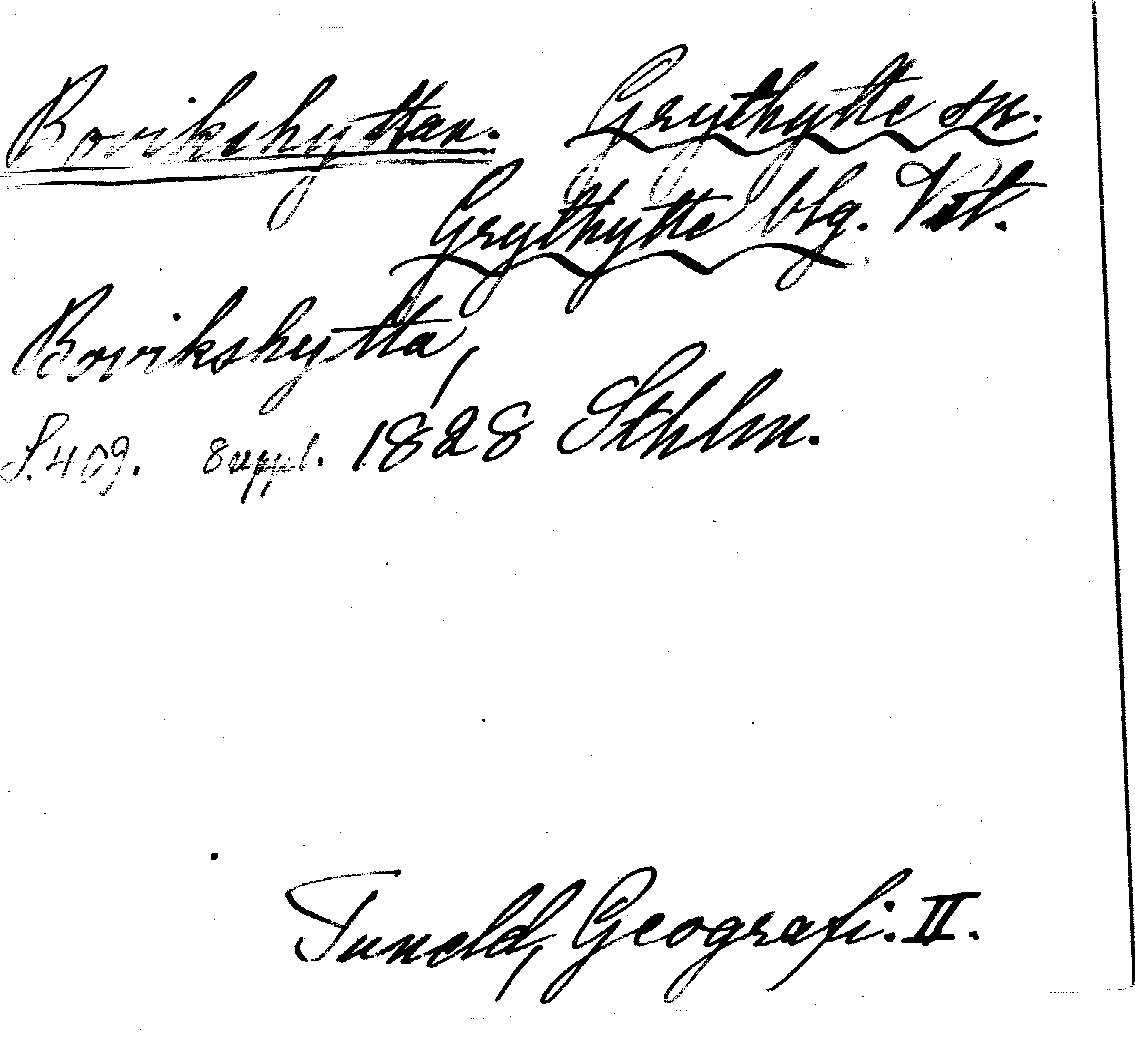 Bovikshyttan. Grythytte sn.
Grythytte blg. Vstl.
Bovikshytta,
S. 409. 8 uppl. 1828 Sthlm.
Tuneld, Geografi. II.